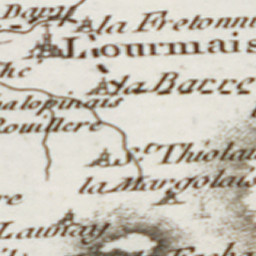 la Fretonni
Liourmais
la Barre
alopinais
Rouillere
St. Thiolai
la Margolais
Launay